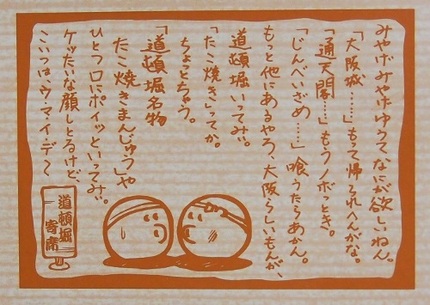 みやげみやげゆうて、なにが欲しいねん。
「大阪城……」もって帰られへんがな。
「通天閣……」もうノボっとき。
「じんべいざめ……」喰うたらあかん。
もっと他にあるやろ、大阪らしいもんが、
道頓堀いってみぃ。
「たこ焼き」ってか。
ちょっとちゃう。
「道頓堀名物
たこ焼きまんじゅう」や
ひとつ口にポイッといってみぃ。
ケッたいな顔しとるけど、
こいつはウ・マイ・デ〜
道頓堀
寄席